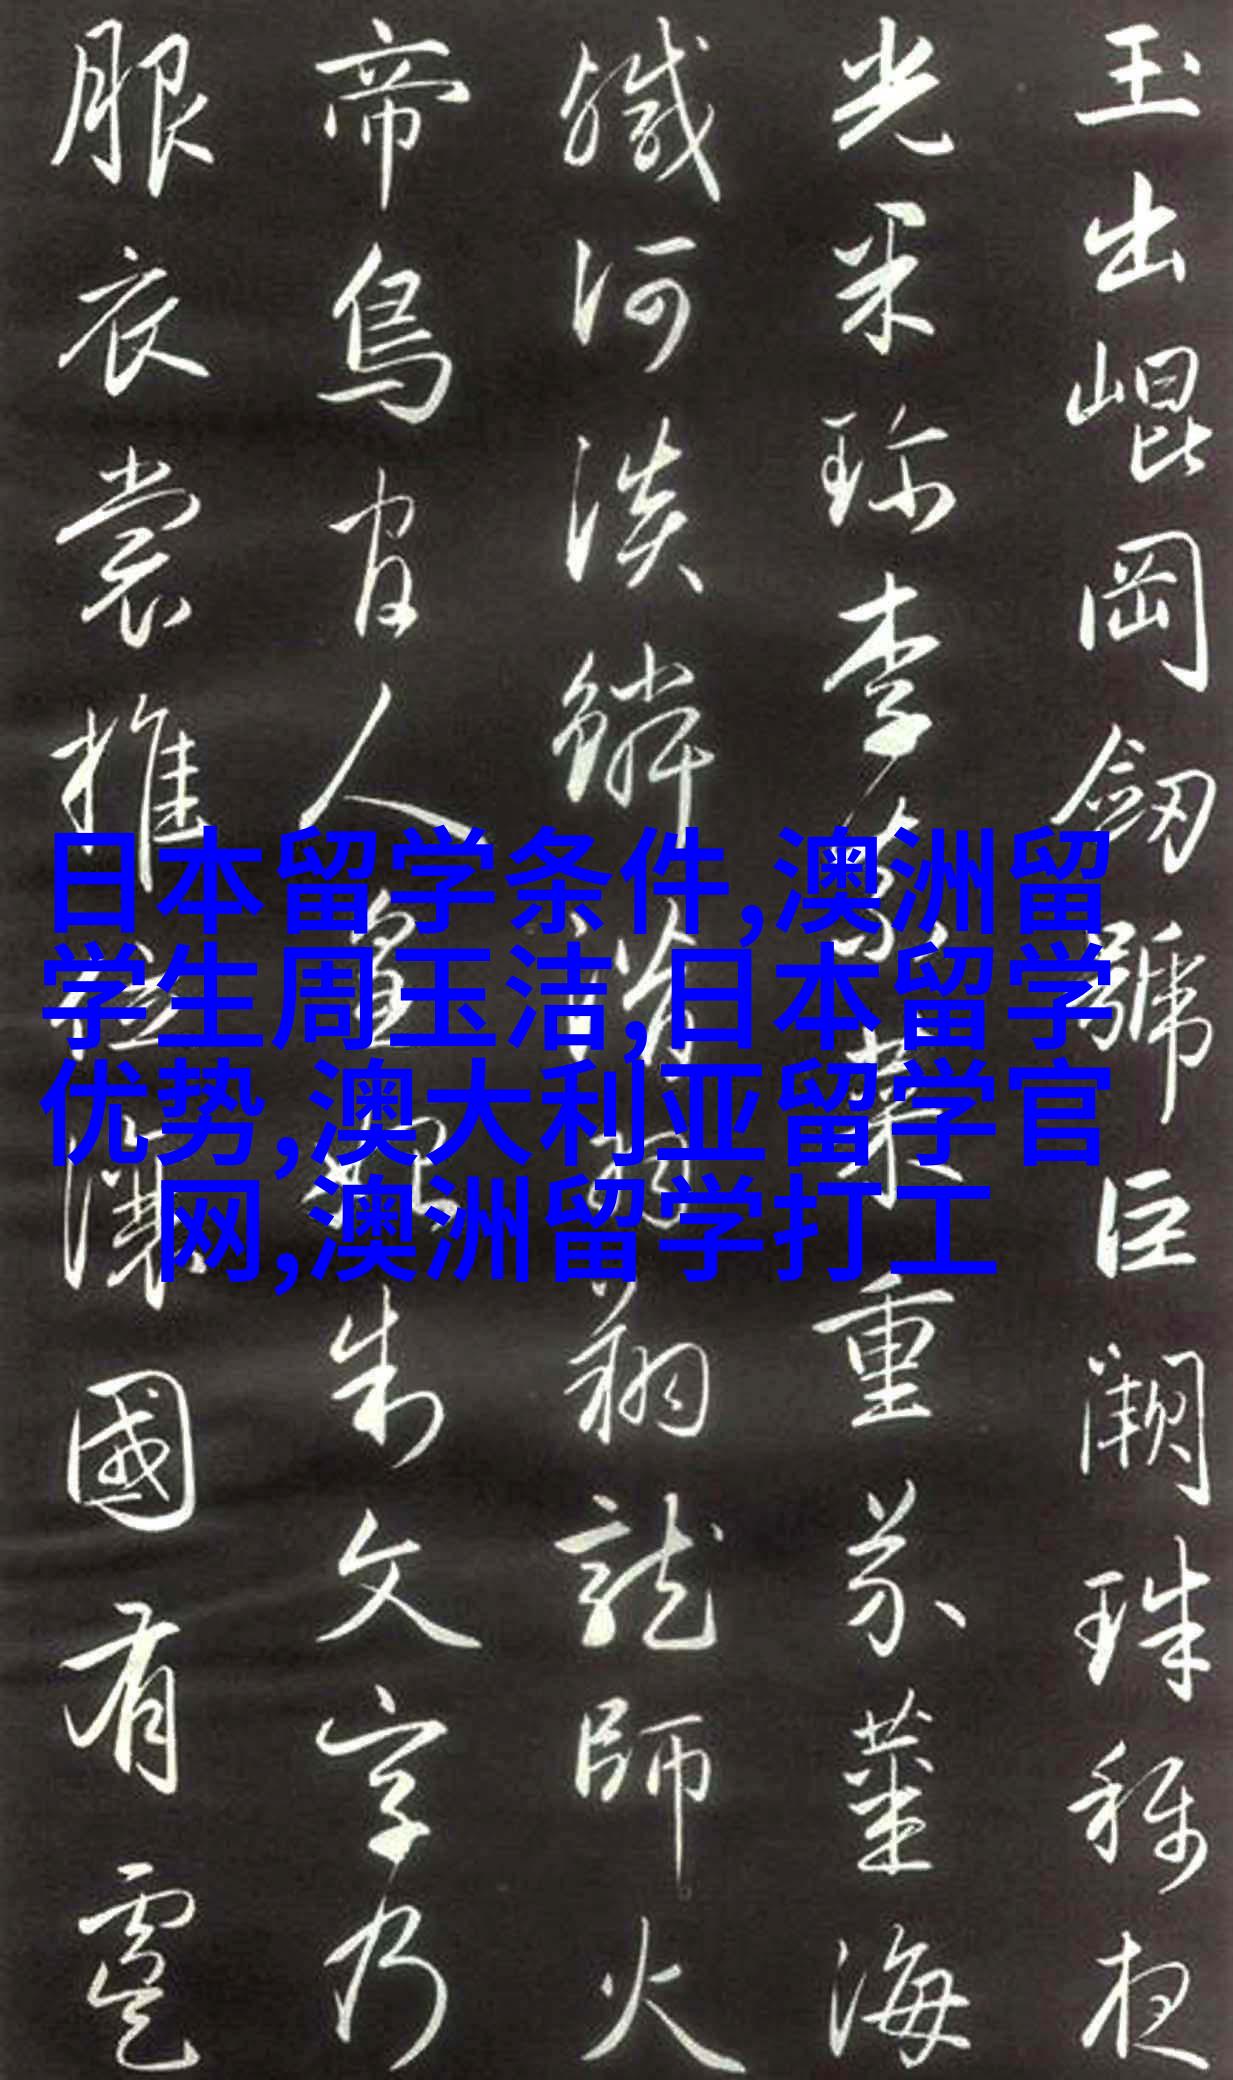 玉出崐岡劒號巨闕珠稱夜
光菓珎李柰菜重芥薑海
鹹河淡鱗潛羽翔龍師火
帝鳥官人皇始制文字乃
服衣裳推位讓國有虞
日本留学条件,澳洲留
学生周玉洁,日本留学
优势,澳大利亚留学官
网,澳洲留学打工